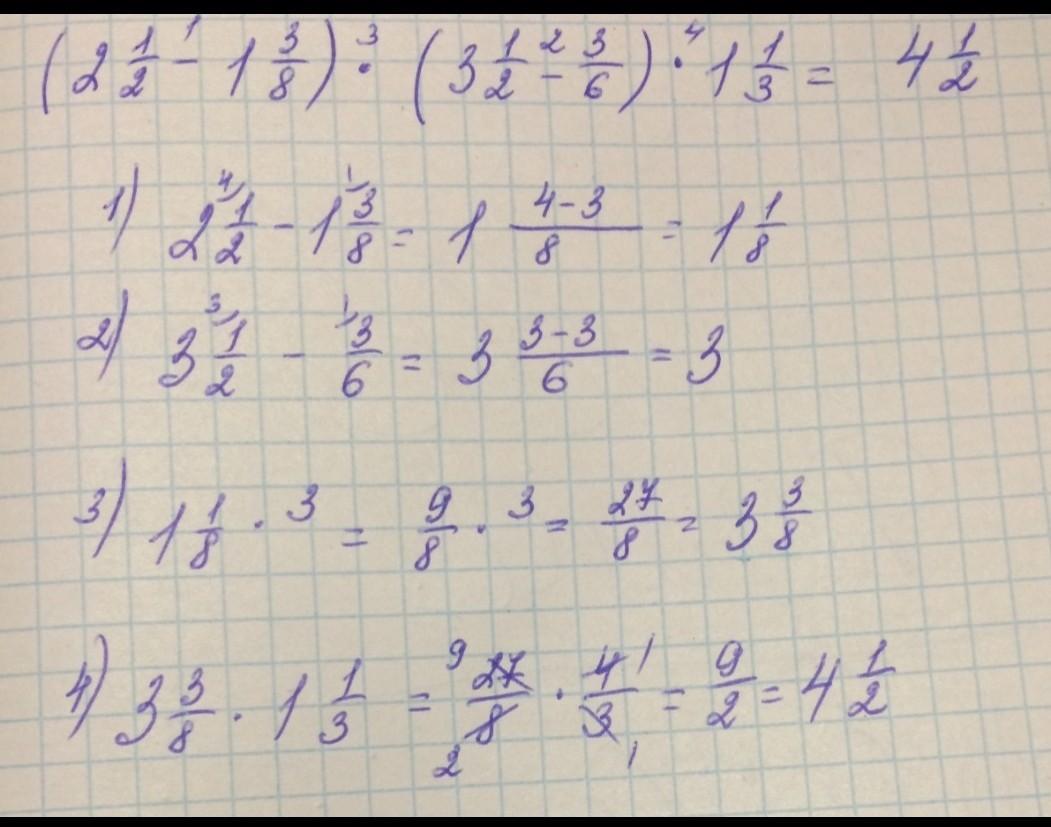 (2 1/2 - 1 3/8) · (3 1/2 - 3/6) · 1 1/3 = 4 1/2
1) 2 1/2 - 1 3/8 = 1 (4-3)/8 = 1 1/8
2) 3 1/2 - 3/6 = 3 (3-3)/6 = 3
3) 1 1/8 · 3 = 9/8 · 3 = 27/8 = 3 3/8
4) 3 3/8 · 1 1/3 = 27/8 · 4/3 = 9/2 = 4 1/2